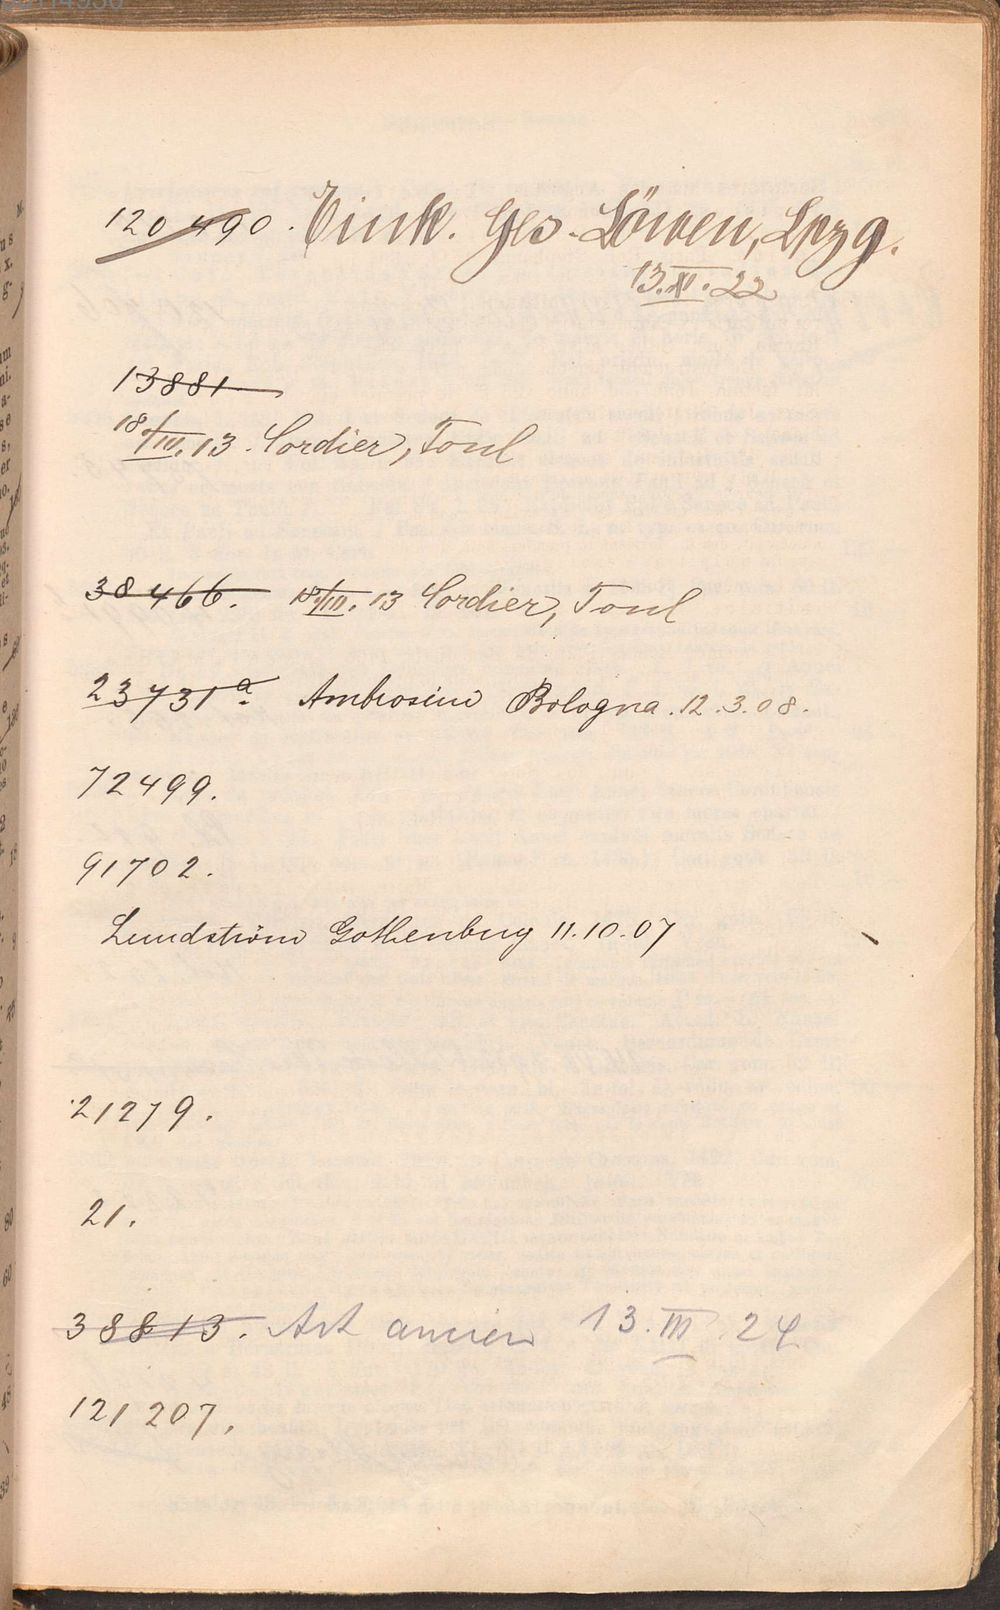 120490. Eink. Ges. Löwen, Lpzg.
13.XI.22
13881
18/III.13. Cordier, Toul
38466. 18/III.13 Cordier, Toul
23731a. Ambrosini Bologna. 12.3.08.
72499.
91702.
Lundström Gothenburg 11.10.07
21279.
21.
38813. Art ancien 13.III.24
121207.